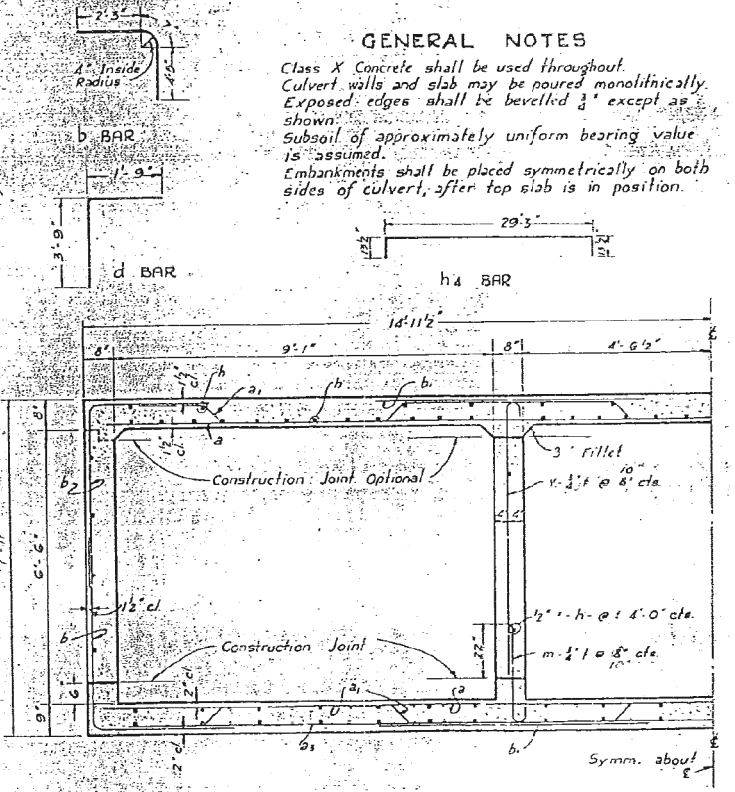 2'-3"
4" Inside
Radius
b BAR
1'-9"
3'-9"
d BAR
GENERAL NOTES
Class X Concrete shall be used throughout.
Culvert walls and slab may be poured monolithically.
Exposed edges shall be bevelled 3/4" except as
shown.
Subsoil of approximately uniform bearing value
is assumed.
Embankments shall be placed symmetrically on both
sides of culvert, after top slab is in position.
29'-3"
13½"
13½"
h4 BAR
14'-11½"
8"
9'-1"
8"
4'-6½"
1½"
cl.
h
a1
h
b1
8"
a
1½"
cl.
3" Fillet
Construction Joint Optional
10"
v-¾"∮ @ 8" cts.
b2
4" 4"
6'-6"
1½" cl.
½"∮-h-@ ± 4'-0" cts.
b
Construction Joint
22"
m-¾"∮ @ 8" cts.
10"
6"
2" cl.
a1
a
9"
2" cl.
a3
b1
Symm. about
℄